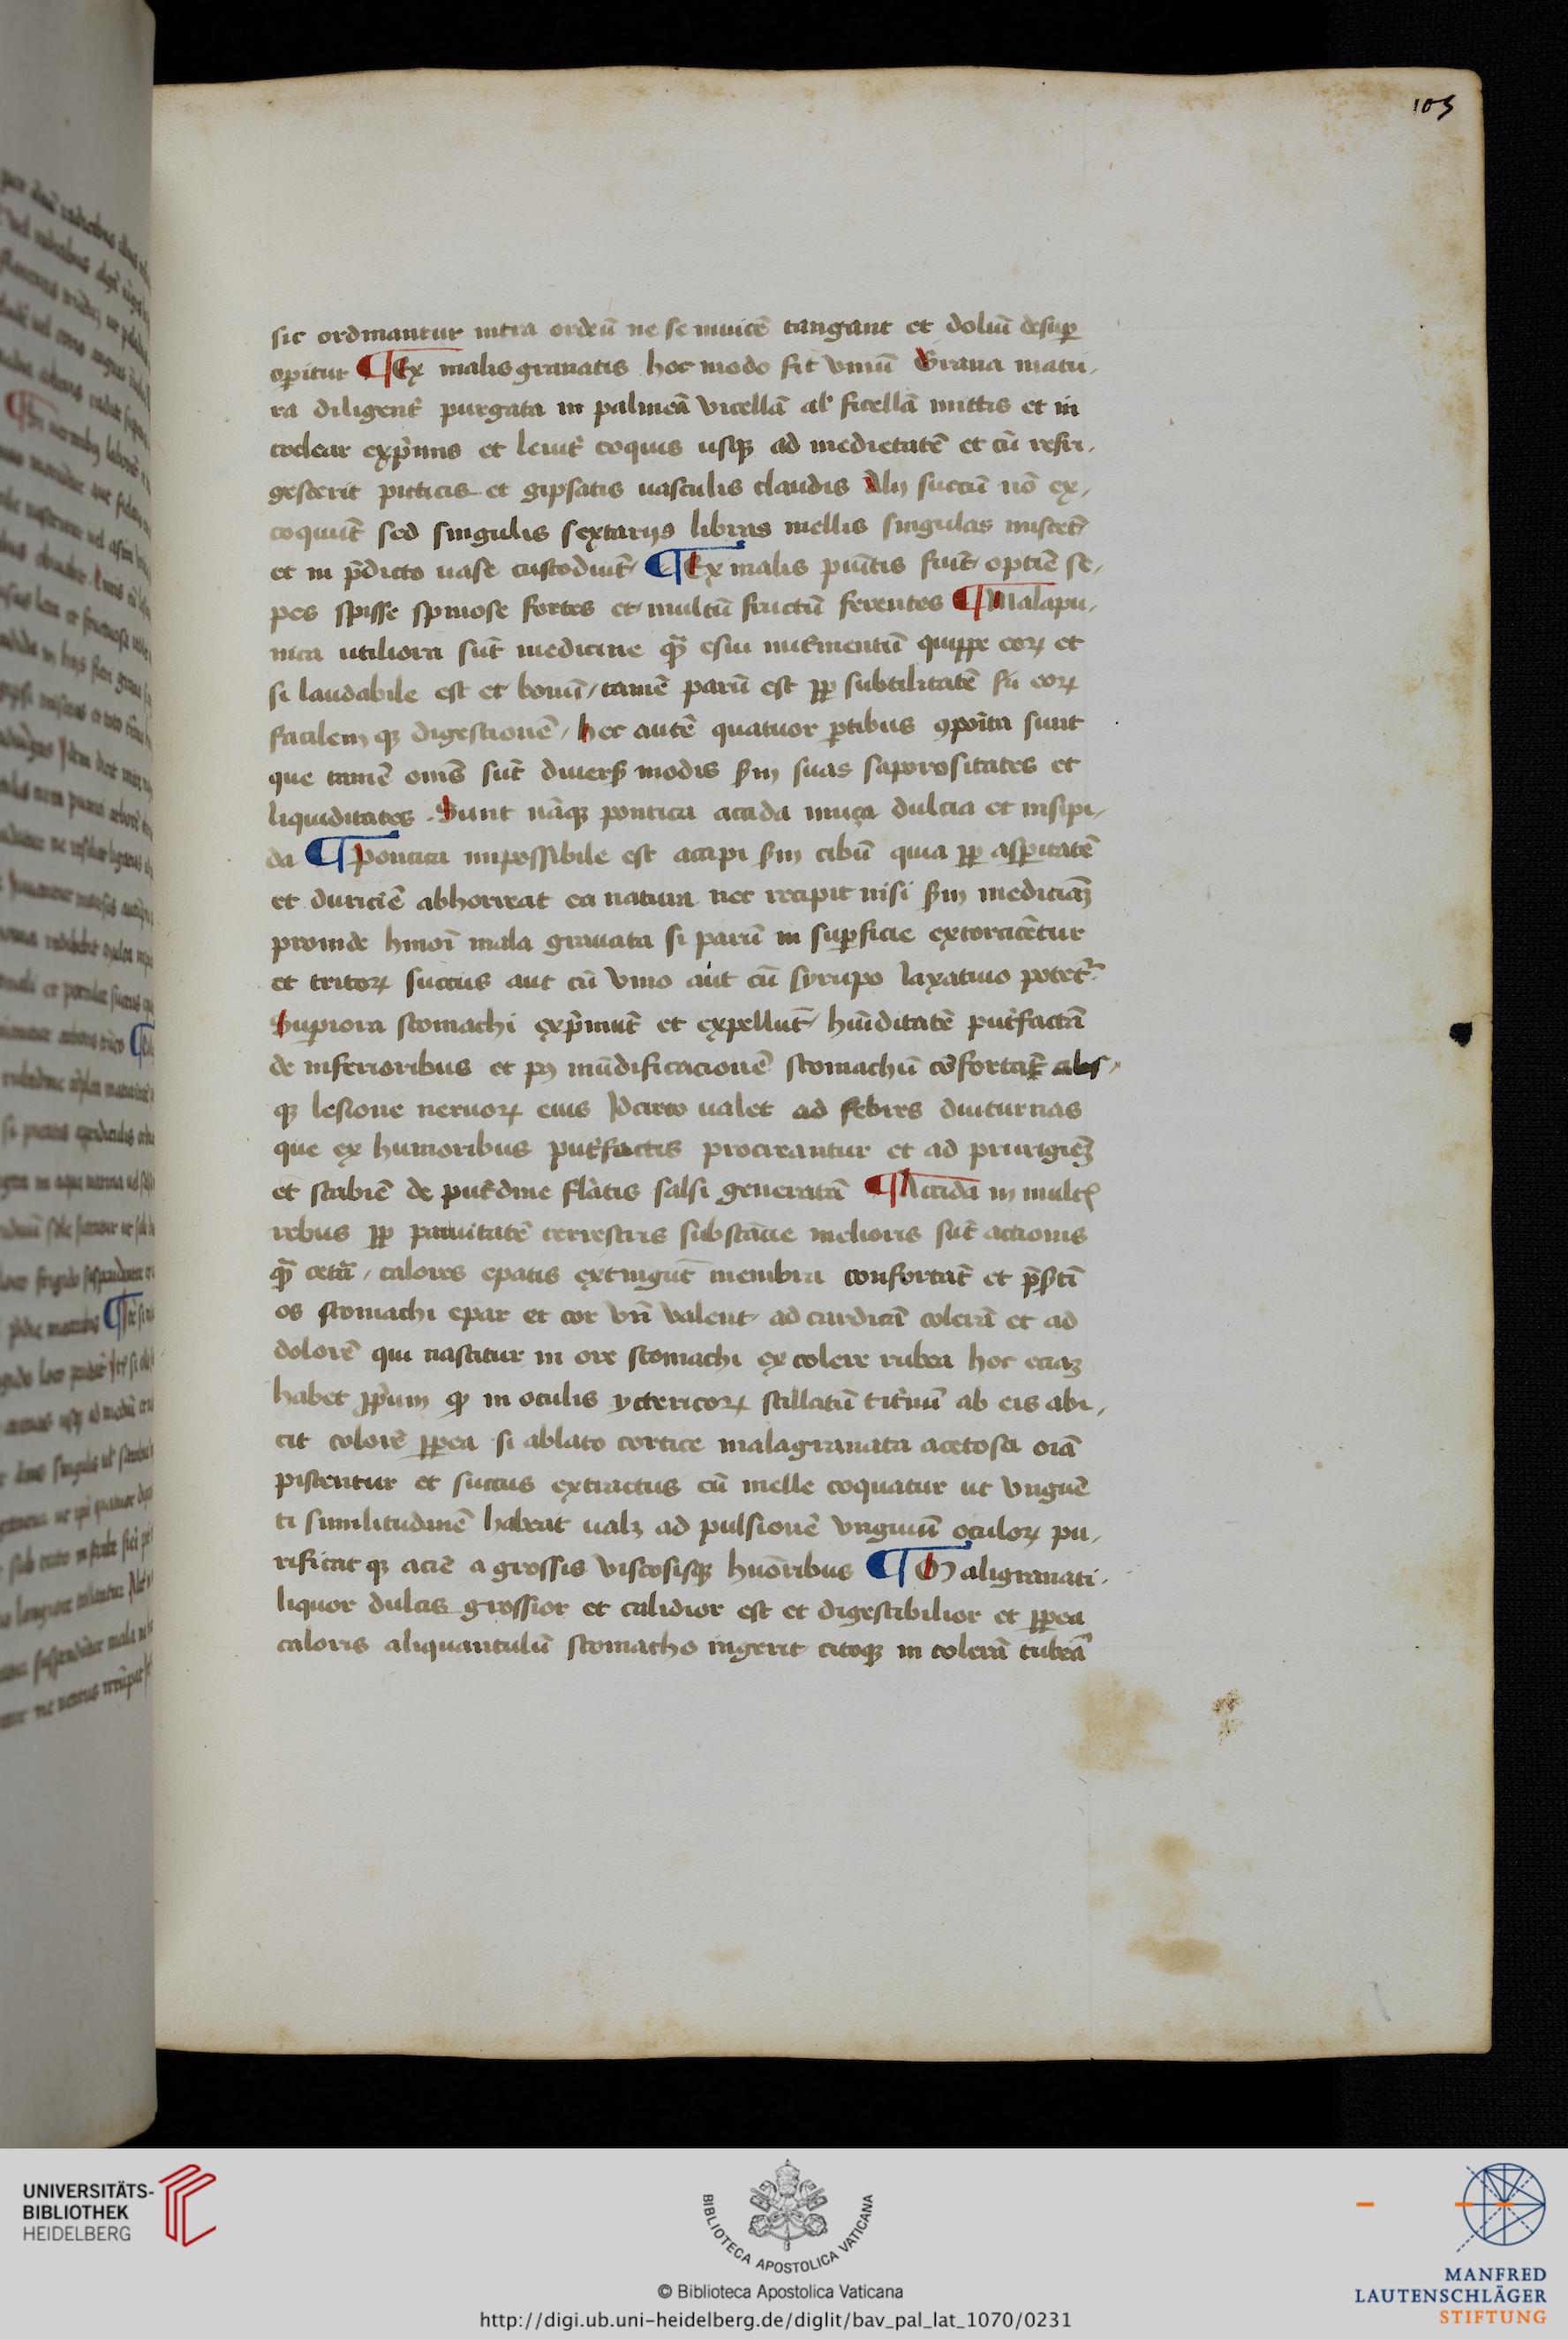 105
sic ordinantur intra ordeū ne se inuicē tangant et doliū desuꝑ
oꝑitur ¶ Ex malisgranatis hoc modo fit vinū Grana matu,
ra diligent᷑ purgata in palmeā vicellā al' ficellā mittis et in
coclear exp̄mis et leuit᷑ coquis usqꝫ ad medietatē et cū refri,
gescerit picticis et gipsatis uasculis claudis Alij succū nō ex,
coquūt sed singulis sextarijs libras mellis singulas miscēt
et in p̄dicto uase custodiūt ¶ Ex malis pūicis fiūt optīe se,
pes spisse spinose fortes et multū fructū ferentes ¶ Malapu,
nica utiliora sūt medicine qā esui nut᷑mentū quippe eoꝝ et
si laudabile est et bonū / tamē parū est ꝓꝑ subtilitatē sui eoꝝ
facilem qꝫ digestionē / hec autē quatuor ꝑtibus ꝯpoīta sunt
que tamē oms̄ sūt diuers̄ modis ẜm suas saporositates et
liquiditates . Sunt nāqꝫ pontica acida muza dulcia et insipi,
da ¶ Pontica impossibile est accipi ẜm cibū quia ꝓꝑ asꝑitatē
et duriciē abhorreat ea natura nec recipit nisi ẜm medicinā
proinde hmoī mala granata si parū in suꝑficie extorticētur
et tritoꝝ succus aut cū vino aut cū syrupo laxatiuo potet᷑
Suꝑiora stomachi exp̄mūt et expellūt hūiditatē put᷑factā
de inferioribus et pꝰ mūdificacionē stomachū cōfortāt abs,
qꝫ lesione neruoꝝ eius Idcirco ualet ad febres diuturnas
que ex humoribus put᷑factis procreantur et ad pruriginē
et scabiē de put᷑dine flātis salsi generatā ¶ Accida in mult'
rebus ꝓꝑ paruitatē terrestris substācie melioris sūt actionis
qā cetā / calores epatis extingūt membra confortāt et p̄ẜtī
os stomachi epar et cor vn̄ valent ad cardicā colerā et ad
dolorē qui nascitur in ore stomachi ex colere rubea hoc eciaꝫ
habet ꝓp̄um qꝫ in oculis yctericoꝝ stillatū cit᷑inū ab eis abi,
cit colorē ꝓꝑea si ablato cortice malagranata acetosa oīa
pistentur et succus extractus cū melle coquatur ut vnguē
ti similitudinē habeat ualꝫ ad pulsionē vnguiū oculoꝝ pu,
rificat qꝫ aciē a grossis viscosisqꝫ huōribus ¶ Maligranati
liquor dulcis grossior et calidior est et digestibilior et ꝓꝑea
caloris aliquantulū stomacho ingerit citoqꝫ in colerā rubeā
UNIVERSITÄTS-
BIBLIOTHEK
HEIDELBERG
BIBLIOTECA APOSTOLICA VATICANA
© Biblioteca Apostolica Vaticana
http://digi.ub.uni-heidelberg.de/diglit/bav_pal_lat_1070/0231
MANFRED
LAUTENSCHLÄGER
STIFTUNG